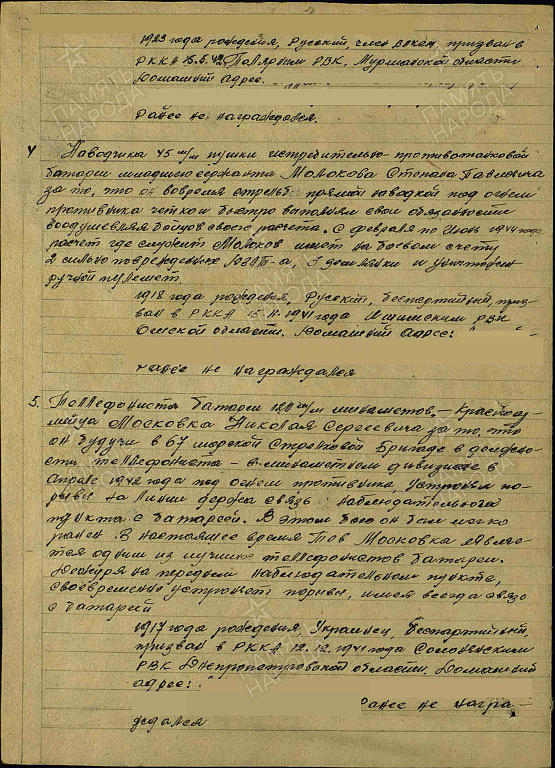 1923 года рождения, Русский, член ВЛКСМ, призван в
РККА 15.5.42 Полярным РВК, Мурманской области
Домашний Адрес.
Ранее не награждался.
4 Наводчика 45 м/м пушки истребительно-противотанковой
батареи младшего сержанта Молокова Степана Павловича
за то, что он вовремя стрельб прямой наводкой под огнем
противника четко и быстро выполнял свои обязанности
воодушевляя бойцов своего расчета. С февраля по Июнь 1944 года
расчет где служит Молоков имеет на боевом счету
2 сильно поврежденных ДЗОТ-а, 3 землянки и уничтожен
ручной пулемет.
1918 года рождения, Русский, беспартийный, приз-
ван в РККА 15.11.1941 года Ишимским РВК
Омской области. Домашний Адрес:
ранее не награждался
5. Телефониста батареи 120 м/м минометов. – Красноар-
мейца Московка Николая Сергеевича за то, что
он будучи в 67 морской Стрелковой Бригаде в должно-
сти телефониста – в минометном дивизионе в
Апреле 1942 года под огнем противника, устранял по-
рывы на линии держа связь наблюдательного
пункта с батареей. В этом бою он был легко
ранен. В настоящее время Тов Московка являе-
тся одним из лучших телефонистов батареи.
Дежуря на переднем наблюдательном пункте,
своевременно устроняет порывы, имея всегда связь
с батареей
1917 года рождения, Украинец, беспартийный,
призван в РККА 12.12.1941 года Солонянским
РВК Днепропетровской области. Домашний
адрес:
Ранее не награ-
ждался
ПАМЯТЬ
НАРОДА